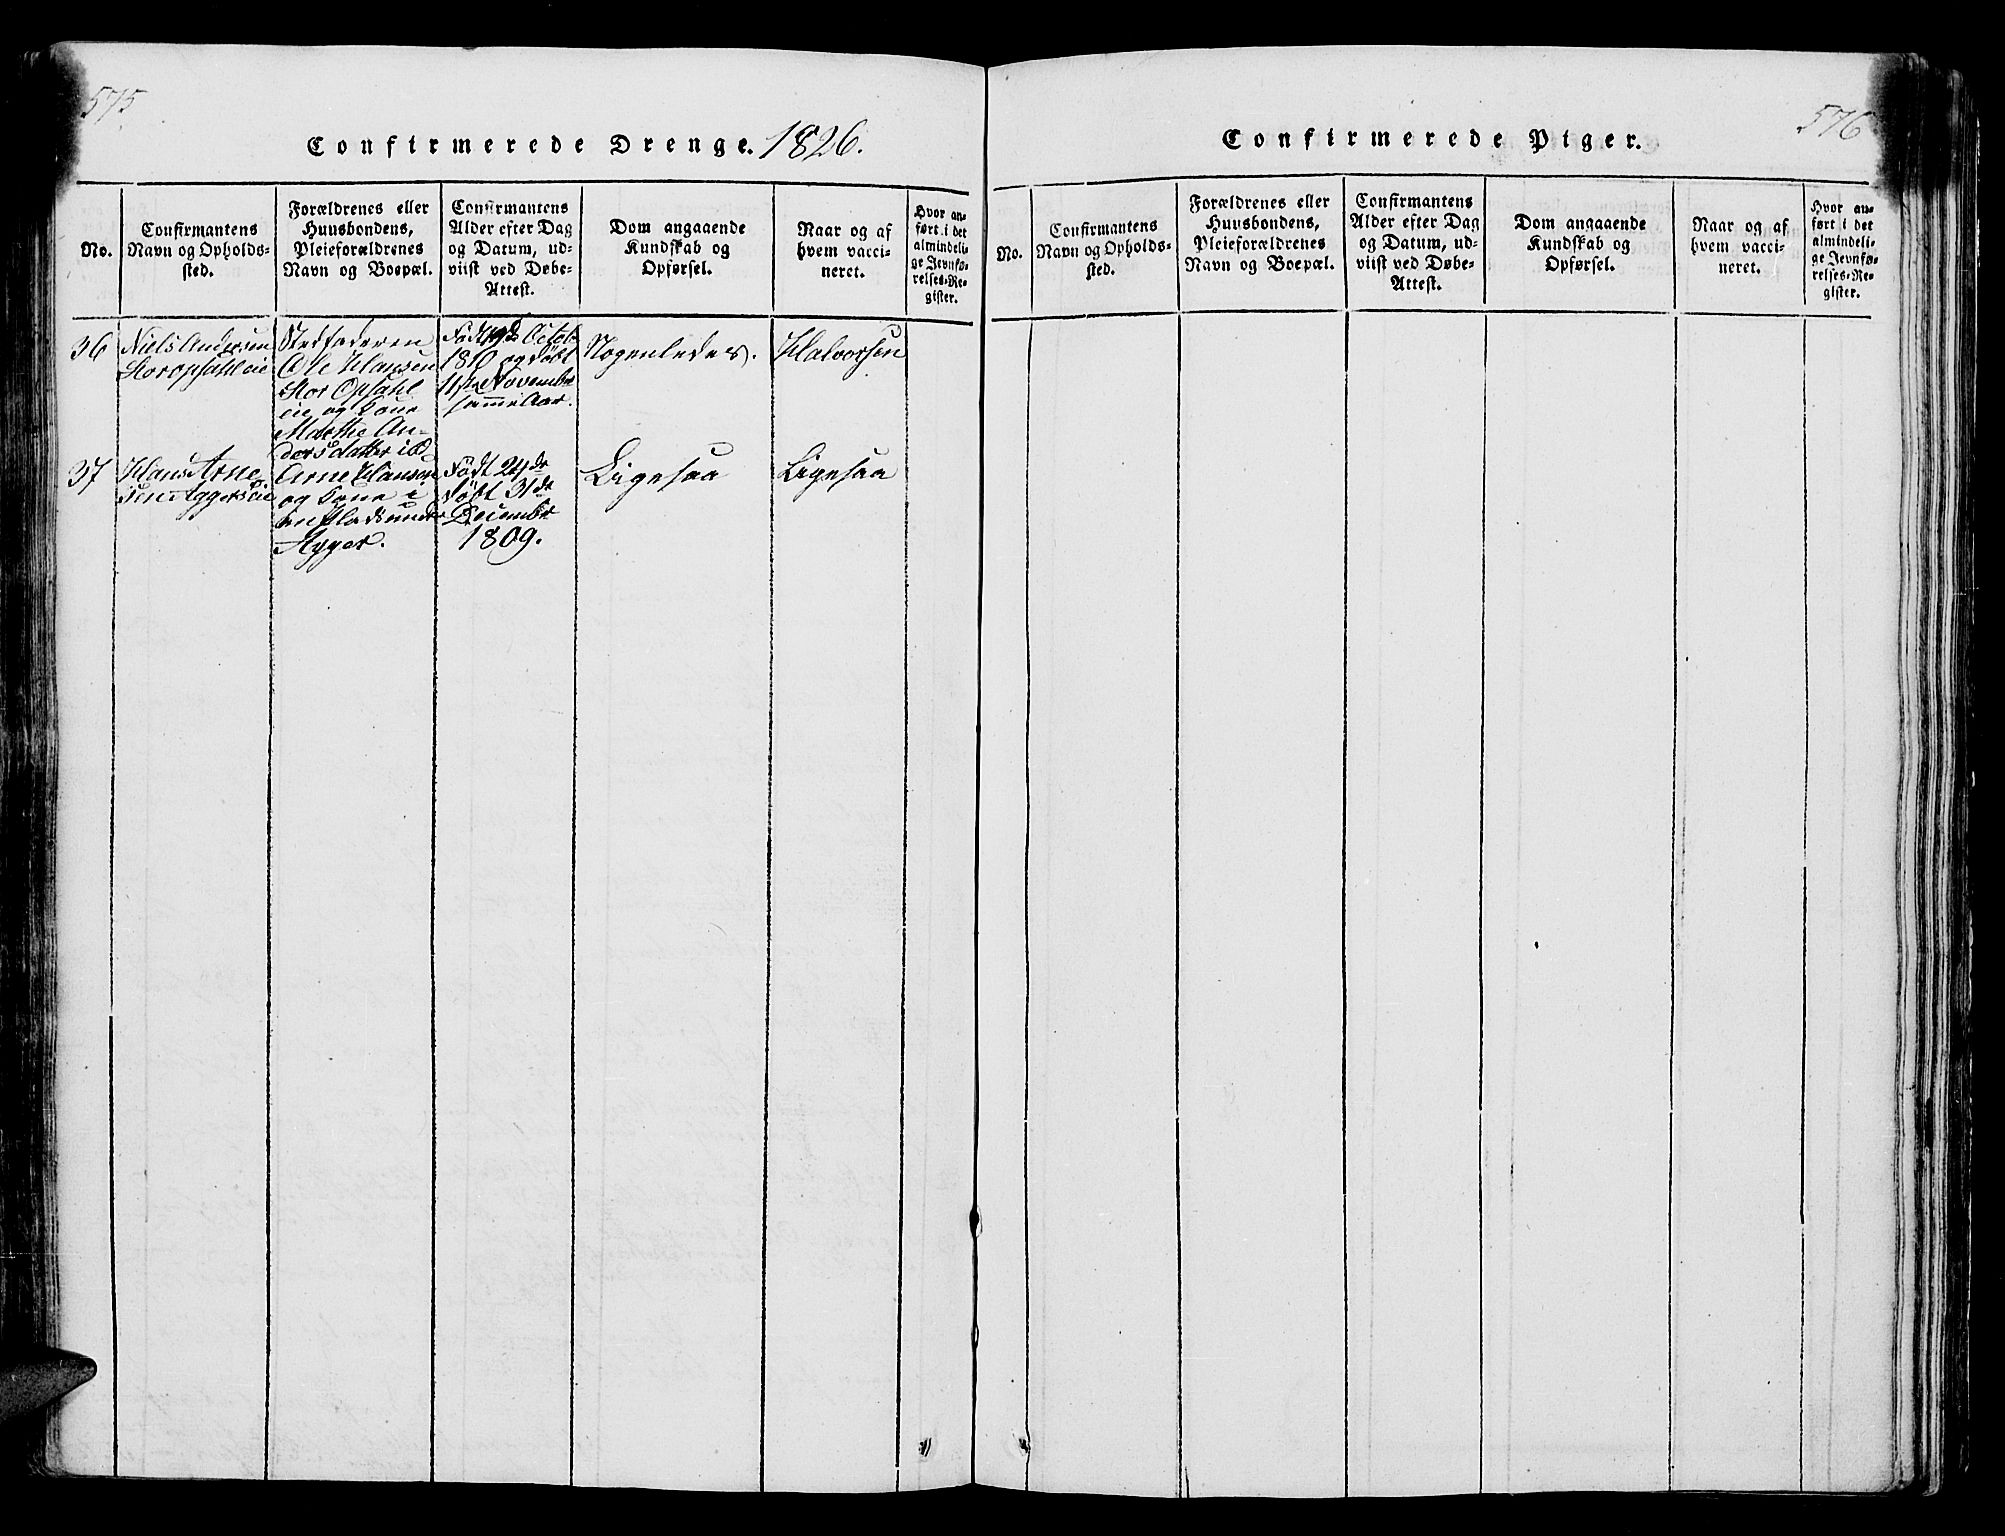 575
Confirmerede Drenge. 1826.
No.
Confirmantens
Navn og Opholds-
sted.
Forældrenes eller
Huusbondens,
Pleieforældrenes
Navn og Boepæl.
Confirmantens
Alder efter Dag
og Datum, ud-
viist ved Døbe-
Attest.
Dom angaaende
Kundskab og
Opførsel.
Naar og af
hvem vacci-
neret.
Hvor an-
ført i det
almindeli-
ge Jevnfø-
relses-Re-
gister.
36
Niels Andersen
Storopsahl eie
Stedfaderen
Ole Hansen
Stor Opsahl
eie og Kone
Marthe An-
dersdatter ibd
Født 19de Octob.
1810 og døbt
11te Novembr
samme Aar.
Nogenledes.
Halvorsen
37
Hans Arne-
sen Aggerseie
Arne Hansen
og Kone i
en Plads under
Agger.
Født 24de
døbt 31de
Decembr
1809.
Ligesaa
Ligesaa
576
Confirmerede Piger.
No.
Confirmantens
Navn og Opholds-
sted.
Forældrenes eller
Huusbondens,
Pleieforældrenes
Navn og Boepæl.
Confirmantens
Alder efter Dag
og Datum, ud-
viist ved Døbe-
Attest.
Dom angaaende
Kundskab og
Opførsel.
Naar og af
hvem vacci-
neret.
Hvor an-
ført i det
almindeli-
ge Jevnfø-
relses-Re-
gister.